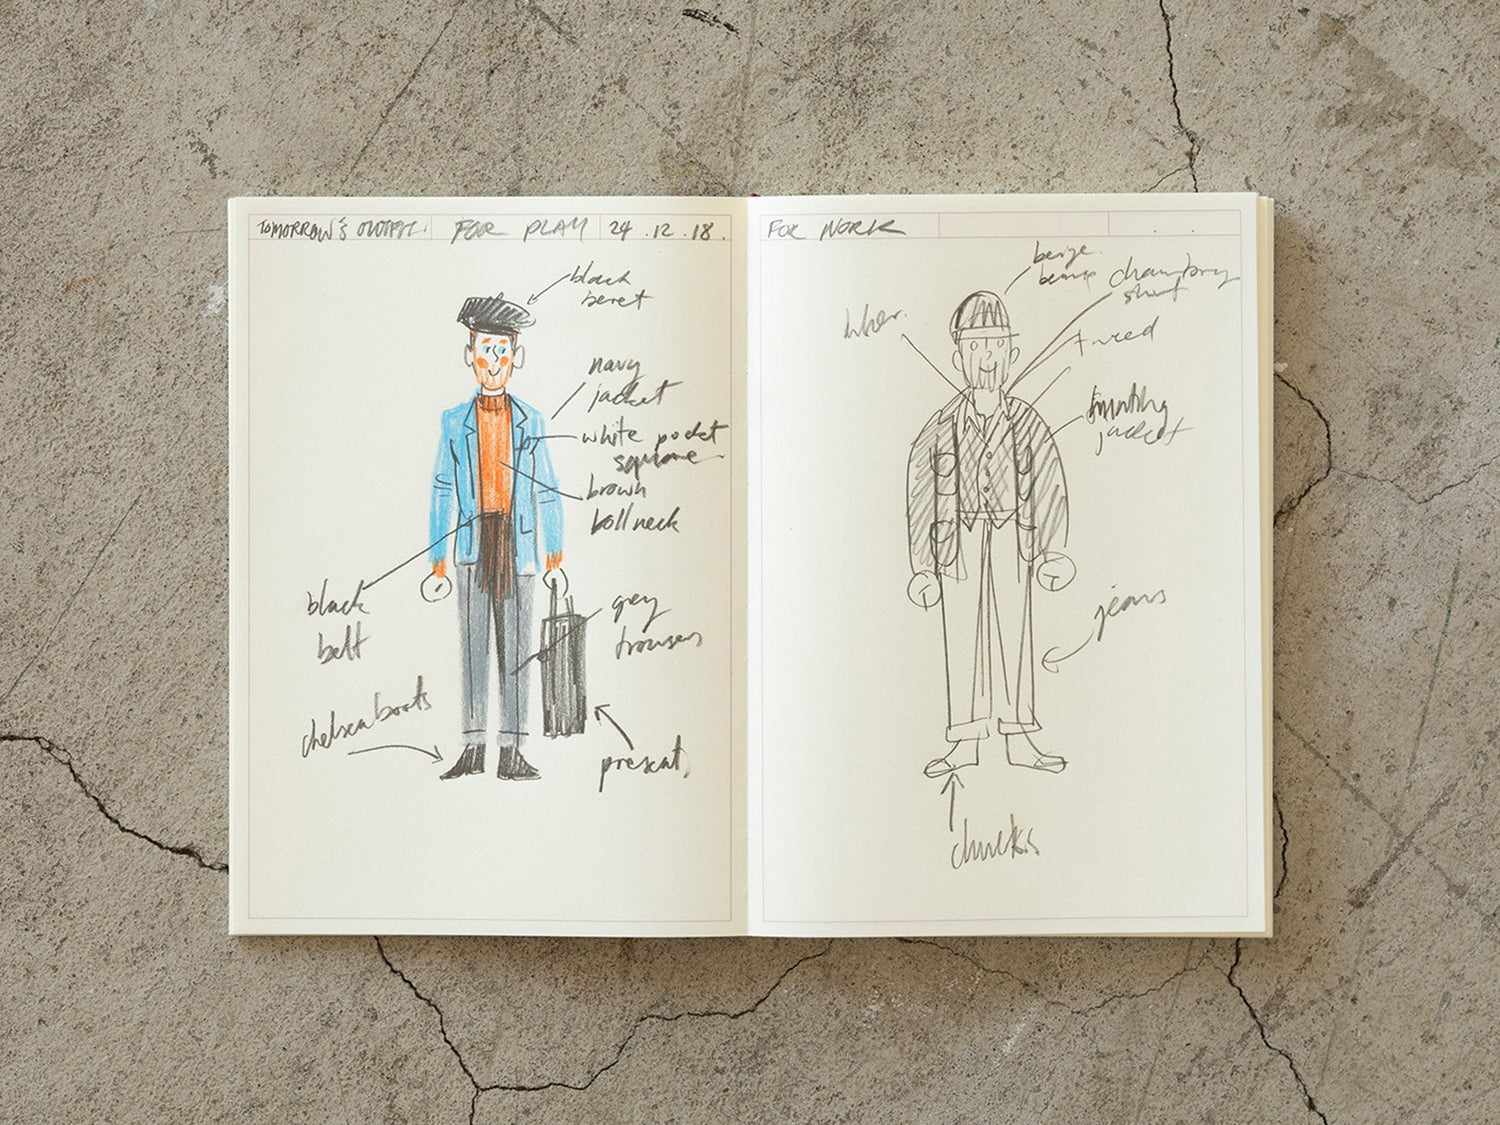 TOMORROW'S OUTFIT. FOR PLAY 24.12.18.
black
beret
navy
jacket
white pocket
square
brown
rollneck
black
belt
grey
trousers
chelsea boots
present
FOR WORK
beige
chambray
shirt
tweed
hunting
jacket
jeans
chucks